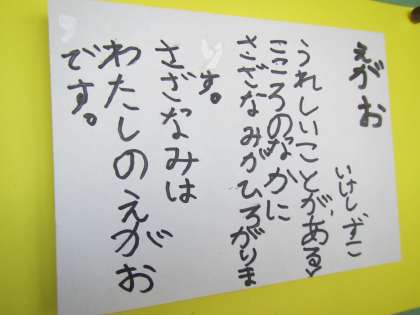 えがお
いけしずこ
うれしいことがある
こころのなかに
さざなみがひろがりま
す。
さざなみは
わたしのえがお
です。